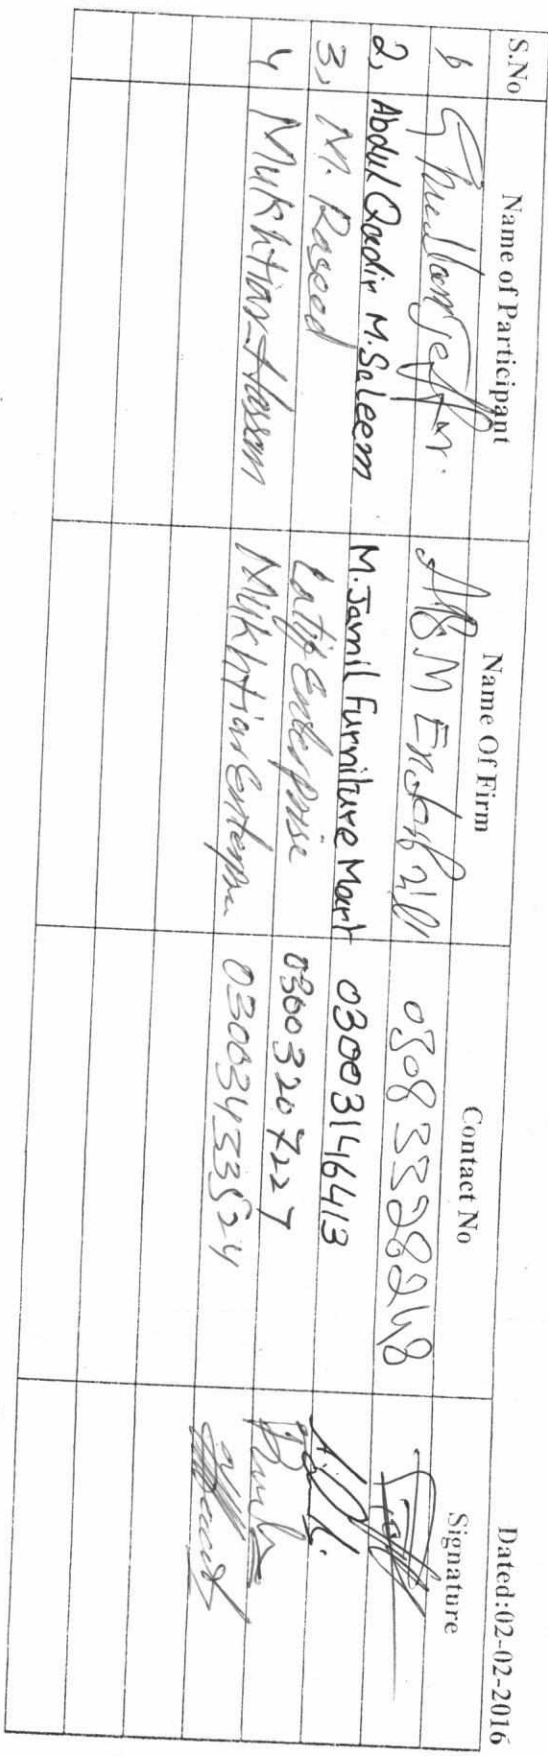 Dated:02-02-2016
S.No Name of Participant Name Of Firm Contact No Signature
Ghullam Jeffar. M Enterprise 03083328248
2, Abdul Qadir M.Saleem M.Jamil Furniture Mart 03003146413
3, M. Raseed Latif Enterprise 03003207227
4 Mukhtiar Hassan Mukhtiar Enterprise 03003433524